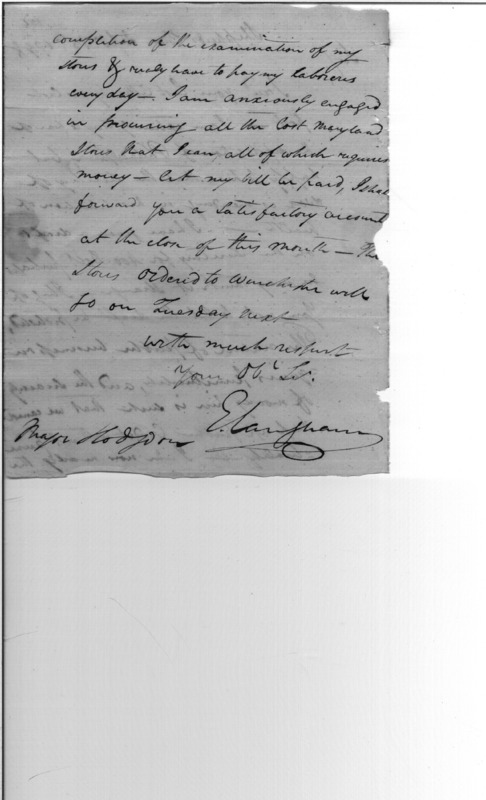 completion of the examination of my
stores & really have to pay my laborers
every day — I am anxiously engaged
in procuring all the Lost Maryland
stores that I can all of which requires
money — let my bill be paid, I shall
forward you a satisfactory account
at the close of this month — The
stores ordered to Winchester will
go on Tuesday next
with much respect
Your Obt. St.
E Langham
Major Hodgdon